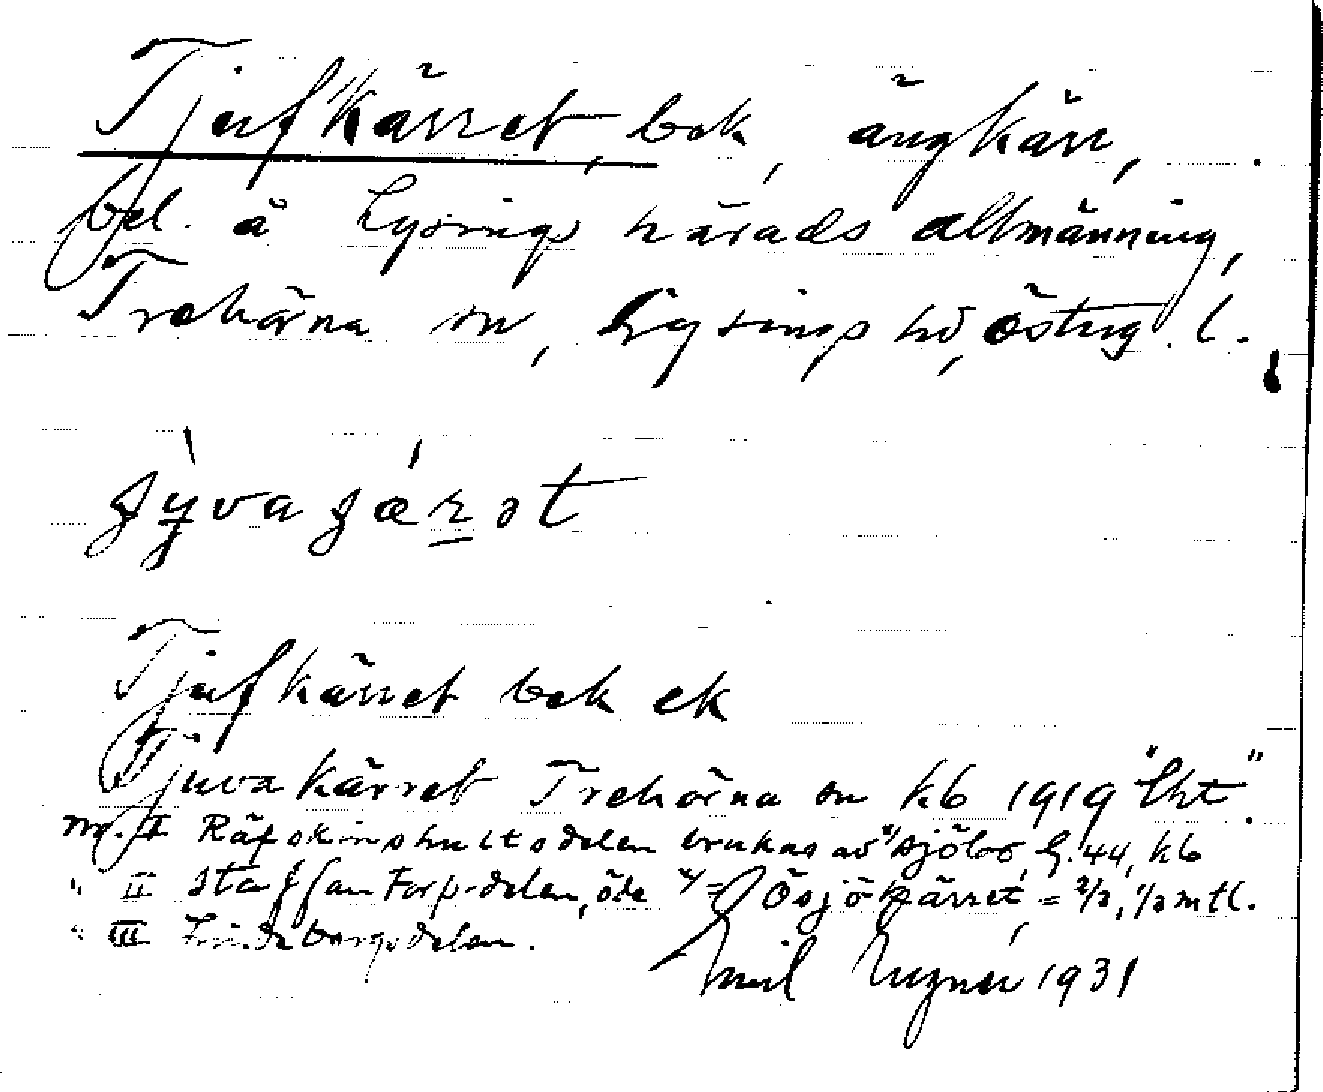 Tjufkärret, bek, ängkärr,
bel. å Lysings härads allmänning,
Trehörna sn, Lysings hd, östug l.
Tjufkärret bek ek
Tjuvakärret Trehörna sn kb 1919 "lht".
Nr. I Räfskinshultsdelen brukas av sjöbo, G. 44, kb
" II Staffantorpsdelen, öde = Ösjökärret, = 2/3, 1/3 mtl.
" III
Emil 1931